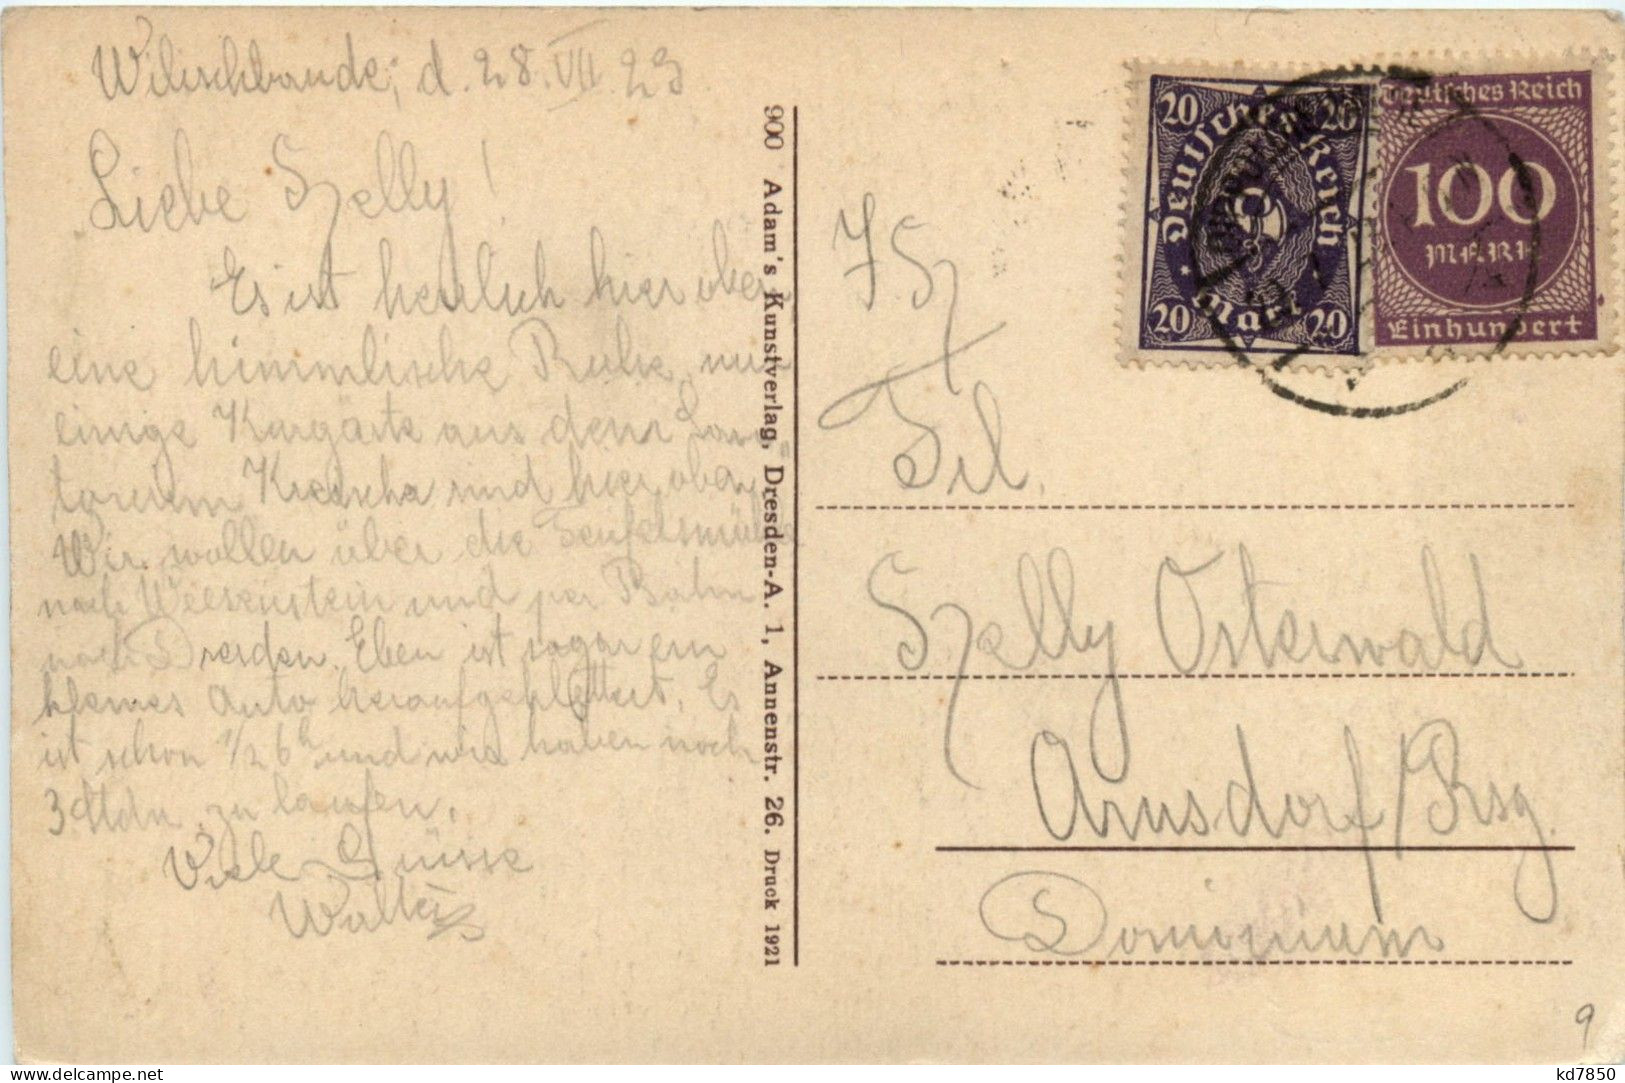 Wilischbaude, d. 28. VII. 23
Liebe Szelly!
Es ist herrlich hier oben
eine himmlische Ruhe, nur
einige Kurgäste aus dem Sana-
torium Kreischa sind hier oben.
Wir wollen über die Teufelsmühle
nach Weesenstein und per Bahn
nach Dresden. Eben ist sogar ein
kleines Auto heraufgeklettert. Es
ist schon 1/2 6h und wir haben noch
3 Stdn. zu laufen.
Viele Grüsse
Walter
900 Adam's Kunstverlag, Dresden-A. 1, Annenstr. 26. Druck 1921
20 Deutsches Reich 20
20 Mark 20
Deutsches Reich
100
MARK
Einhundert
Frl.
Szelly Osterwald
Arnsdorf/Rsg.
Dominium
9
kd7850